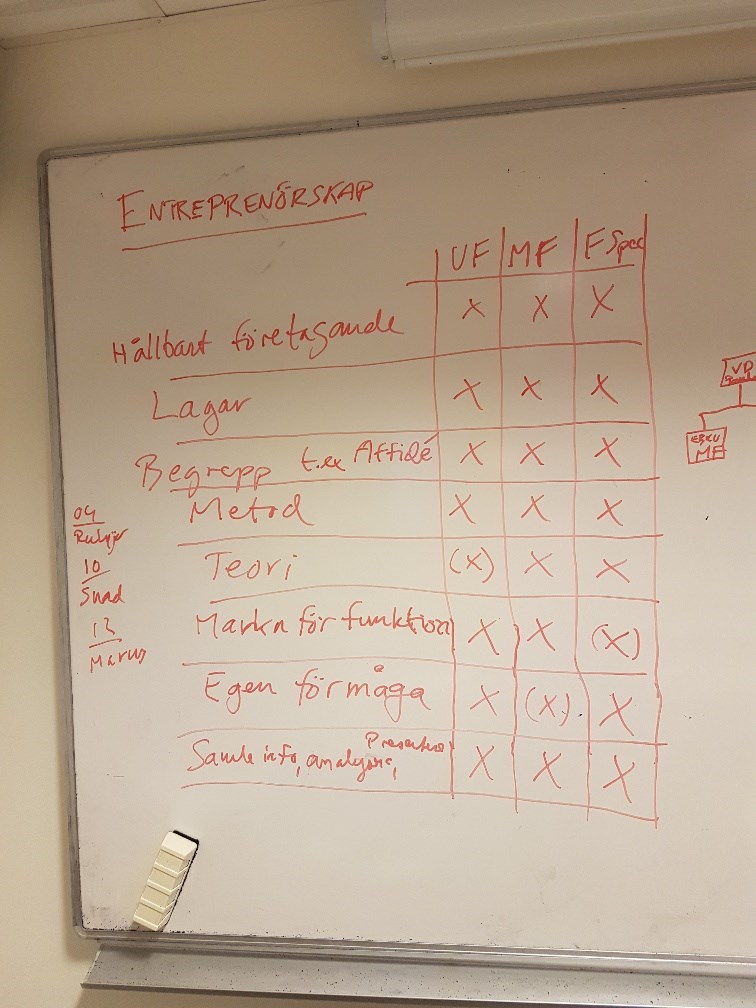 ENTREPRENÖRSKAP
UF MF F Spec
Hållbart företagande X X X
Lagar X X X
Begrepp t.ex Affidé X X X
Metod X X X
Teori (X) X X
Markn för funktion X X (X)
Egen förmåga X (X) X
Samla info, analysera, X X X
04
10
Suad
13
VD
MF